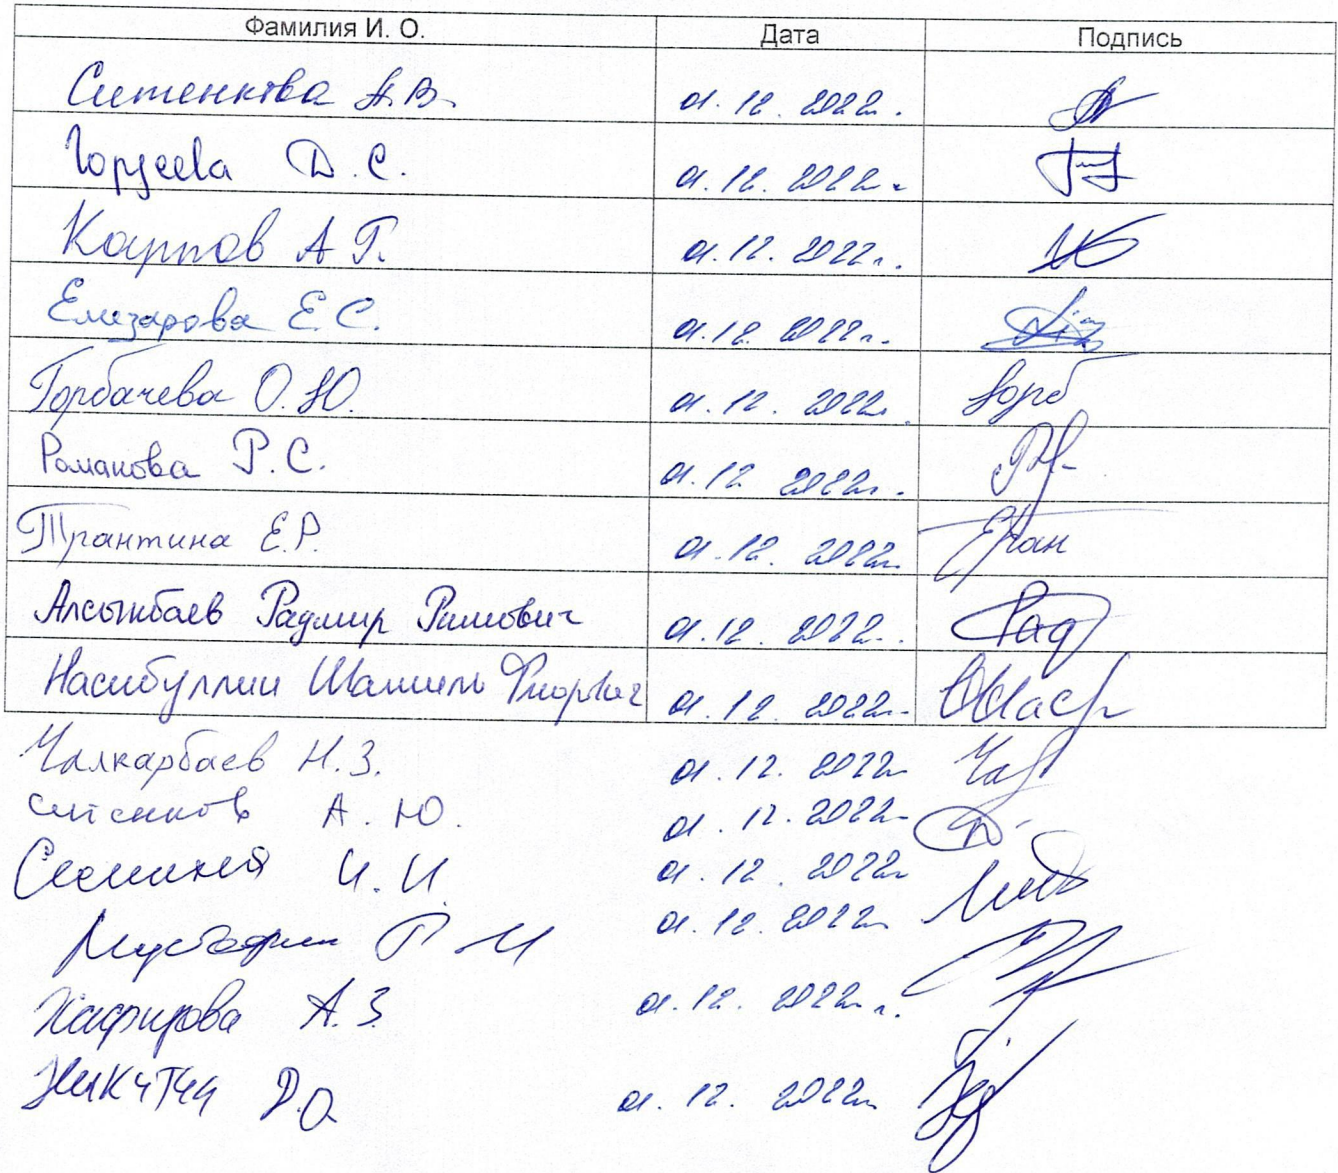 Фамилия И. О. Дата Подпись
Ситенкова А.В. 01.12.2022г.
Гордеева Д.С. 01.12.2022г.
Карпов А.Г. 01.12.2022г.
Елизарова Е.С. 01.12.2022г.
Горбачева О.Ю. 01.12.2022г. Горб
Романова Р.С. 01.12.2022г.
Трантина Е.Р. 01.12.2022г. Тран
Алсынбаев Радмир Римович 01.12.2022г. Рад
Насибуллин Шамиль 01.12.2022г.
Чалкарбаев Н.З. 01.12.2022г.
Ситенков А.Ю. 01.12.2022г.
И.И. 01.12.2022г.
Мустафин Р И 01.12.2022г.
А.З. 01.12.2022г.
Никитин Р.О 01.12.2022г.